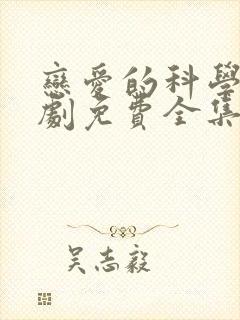 戀愛的科學
劇免費全集
吴志毅